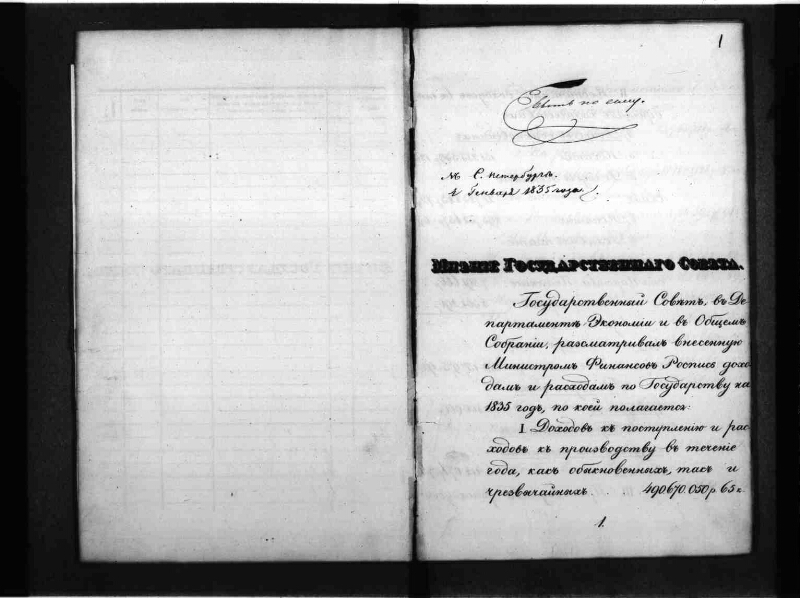 1
Быть по сему.
Въ С. Петербургѣ.
1835 года.
Мнѣніе Государственнаго Совѣта.
Государственный Совѣтъ, въ Де
партаментѣ Экономіи и въ Общемъ
Собраніи, разсматривалъ внесенную
Министромъ Финансовъ Роспись дохо
дамъ и расходамъ по Государству на
1835 годъ, по коей полагается:
I. Доходовъ къ поступленію и рас
ходовъ къ производству въ теченіе
года, какъ обыкновенныхъ, такъ и
чрезвычайныхъ . . 490.670.050 р. 65 к.
1.